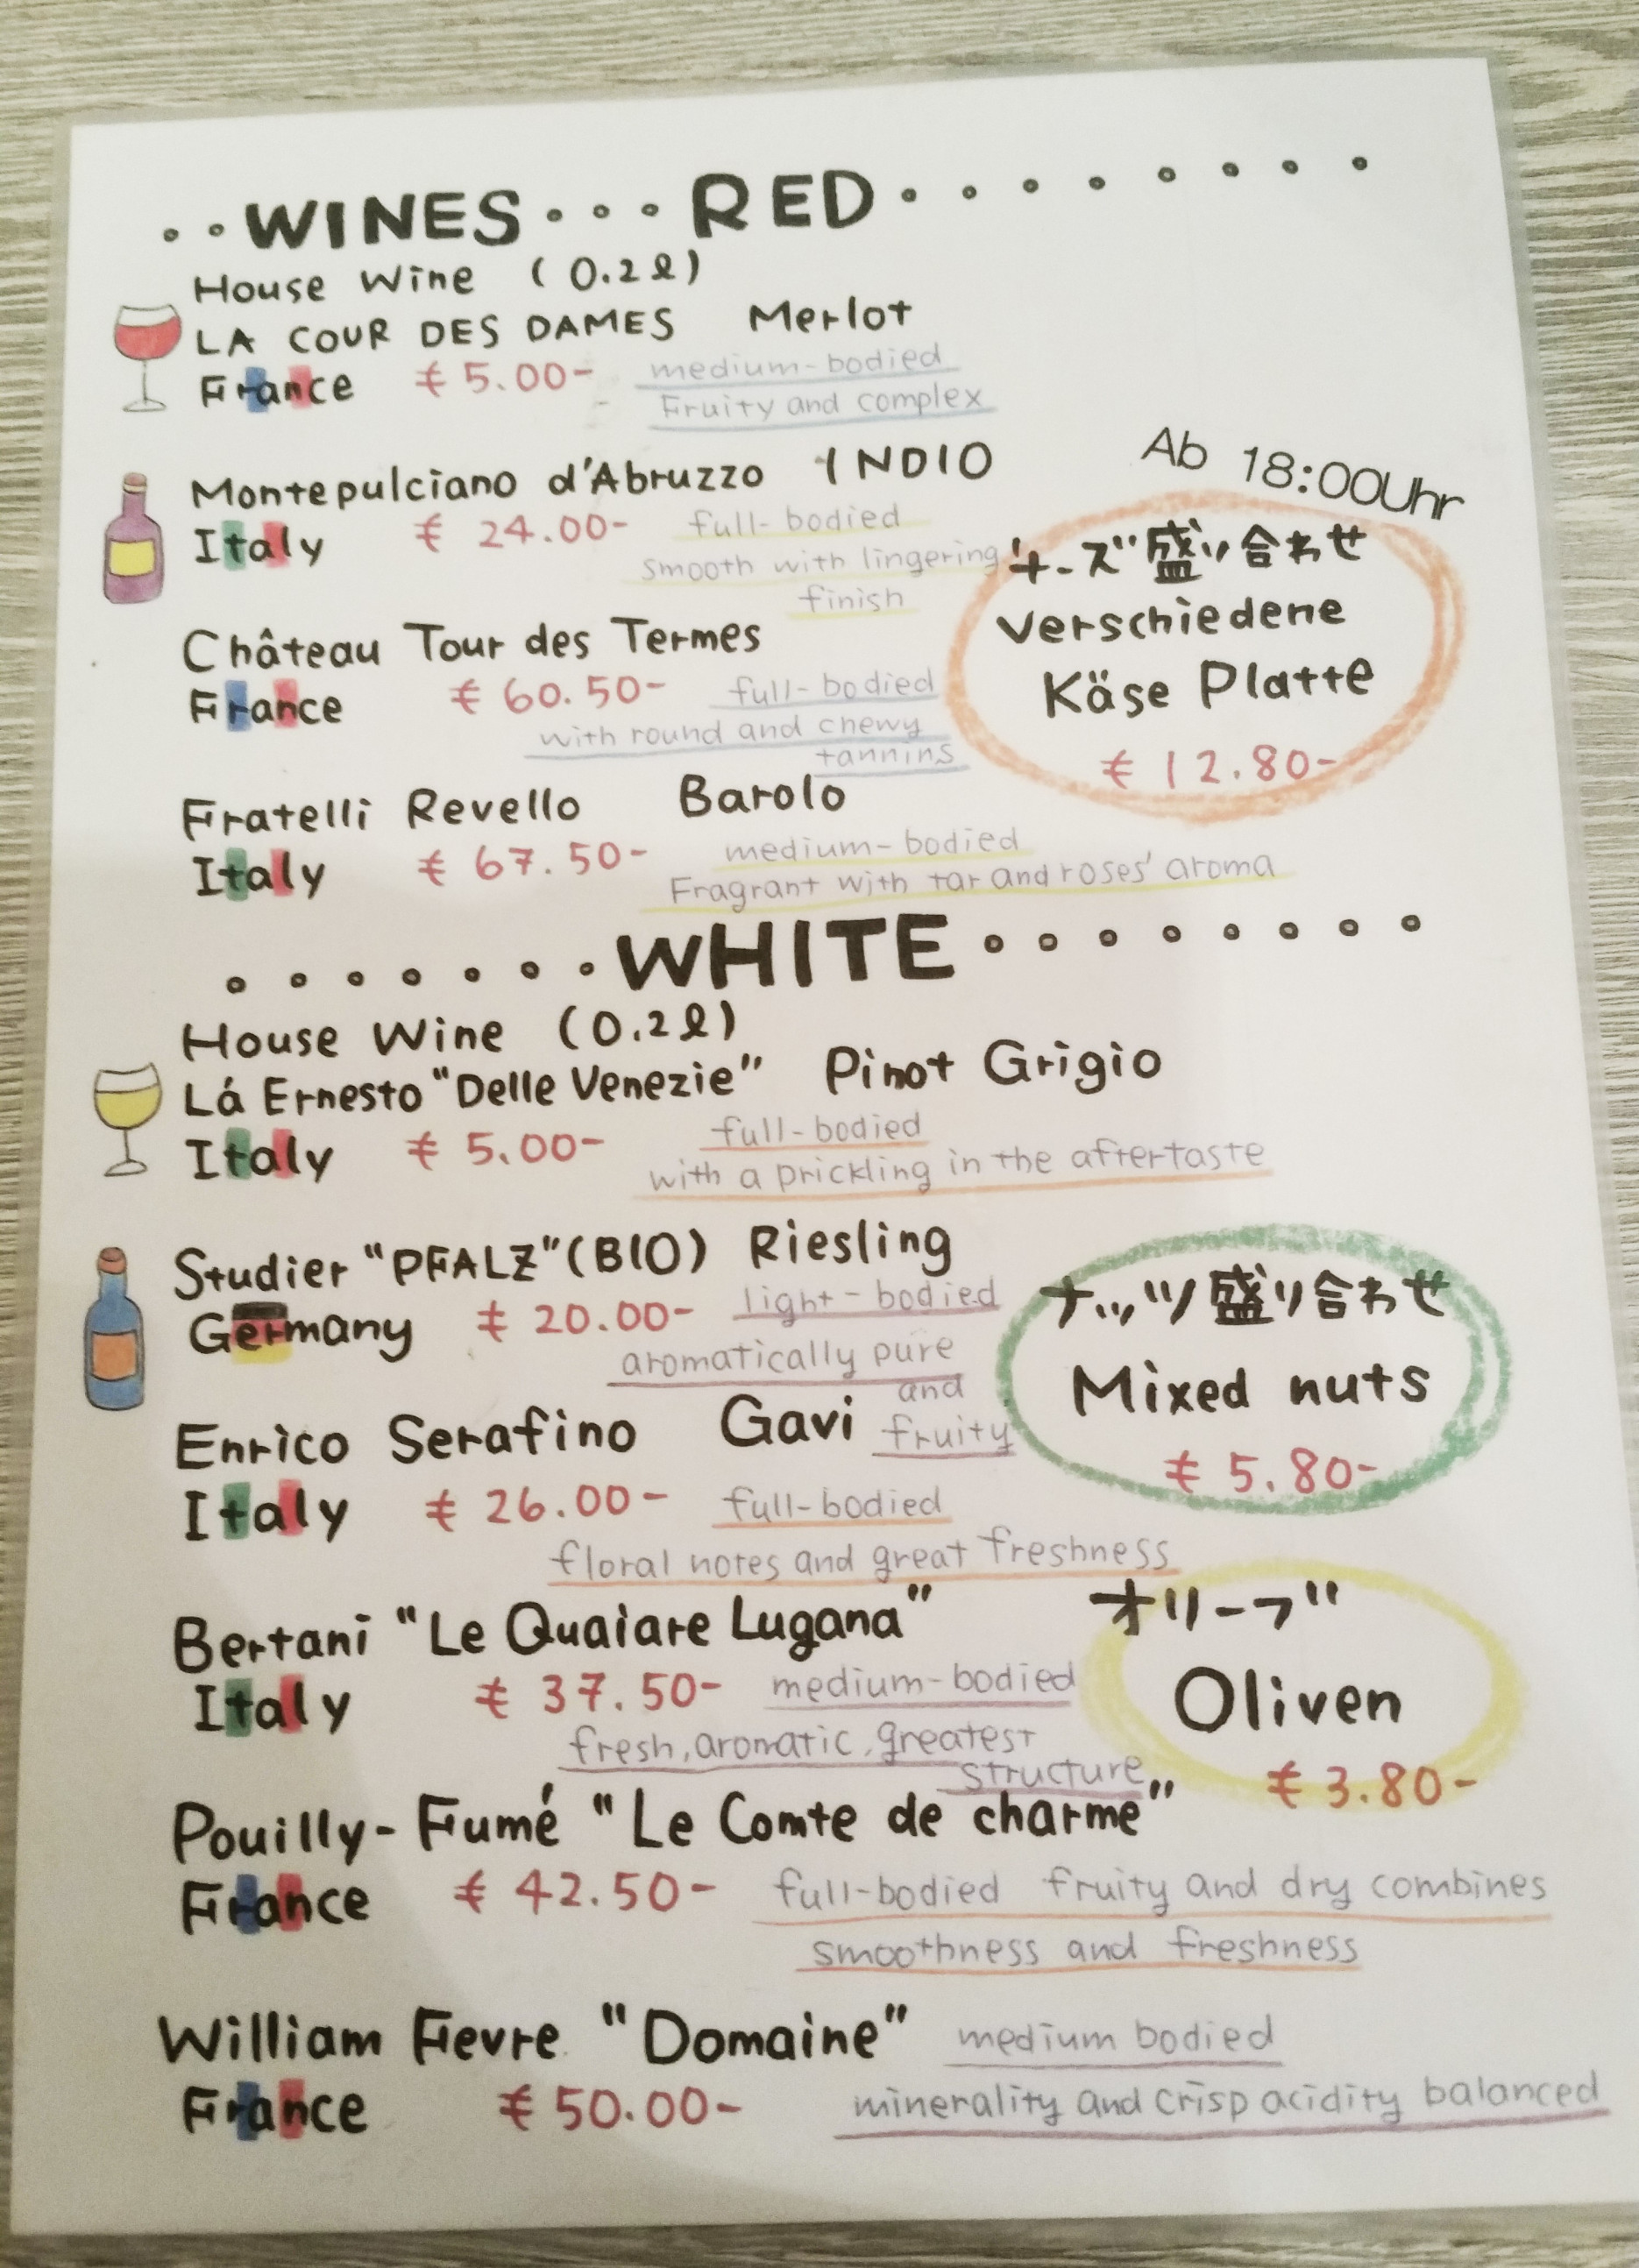 WINES RED
House Wine (0.2ℓ)
LA COUR DES DAMES Merlot
France € 5.00-
medium-bodied
Fruity and complex
Montepulciano d'Abruzzo INDIO
Italy € 24.00-
full-bodied
smooth with lingering
finish
Château Tour des Termes
France € 60.50-
full-bodied
with round and chewy
tannins
Fratelli Revello Barolo
Italy € 67.50-
medium-bodied
Fragrant with tar and roses' aroma
Ab 18:00Uhr
チーズ盛り合わせ
Verschiedene
Käse Platte
€ 12.80-
WHITE
House Wine (0.2ℓ)
Lá Ernesto "Delle Venezie" Pinot Grigio
Italy € 5.00-
full-bodied
with a prickling in the aftertaste
Studier "PFALZ" (BIO) Riesling
Germany € 20.00-
light-bodied
aromatically pure
and
fruity
Enrico Serafino Gavi
Italy € 26.00-
full-bodied
floral notes and great freshness
ナッツ盛り合わせ
Mixed nuts
€ 5.80-
Bertani "Le Quaiare Lugana"
Italy € 37.50-
medium-bodied
fresh, aromatic, greatest
structure
オリーブ
Oliven
€ 3.80-
Pouilly-Fumé "Le Comte de charme"
France € 42.50-
full-bodied fruity and dry combines
smoothness and freshness
William Fevre "Domaine"
medium bodied
France € 50.00-
minerality and crisp acidity balanced